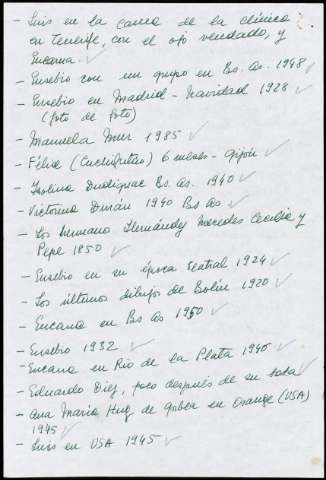 - Luis en la cama de la clínica
en Tenerife, con el ojo vendado, y
Encarna.
- Eusebio con un grupo en Bs. As. 1948
- Eusebio en Madrid - Navidad 1928
(foto de foto)
- Manuela Mur 1985
- Félix (Cuchifritas) 6 meses - Gijón
- Bs. As. 1940
- Victorina Durán 1940 Bs As
- Los hermanos Hernández Mercedes Cecilia y
Pepe 1850
- Eusebio en su época teatral 1924
- Los últimos dibujos de Bolín 1920
- Encarna en Bs As 1950
- Eusebio 1932
- Encarna en Rio de la Plata 1940
- Eduardo Diez, poco después de su boda
- Ana María Hug de en Orange (USA)
1945
- Luis en USA 1945